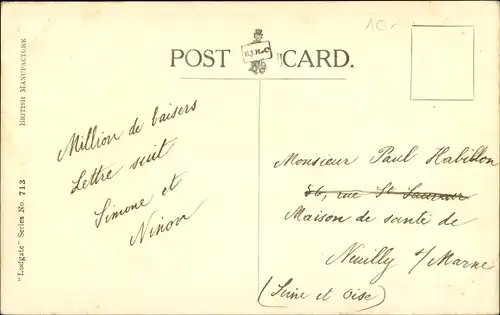 10-
POST CARD.
E.J.H & Co
Million de baisers
Lettre suit
Simone et
Ninon
Monsieur Paul Habillon
56, rue St Sauveur
Maison de santé de
Neuilly s/Marne
(Seine et Oise)
"Ludgate" Series No. 713
BRITISH MANUFACTURE